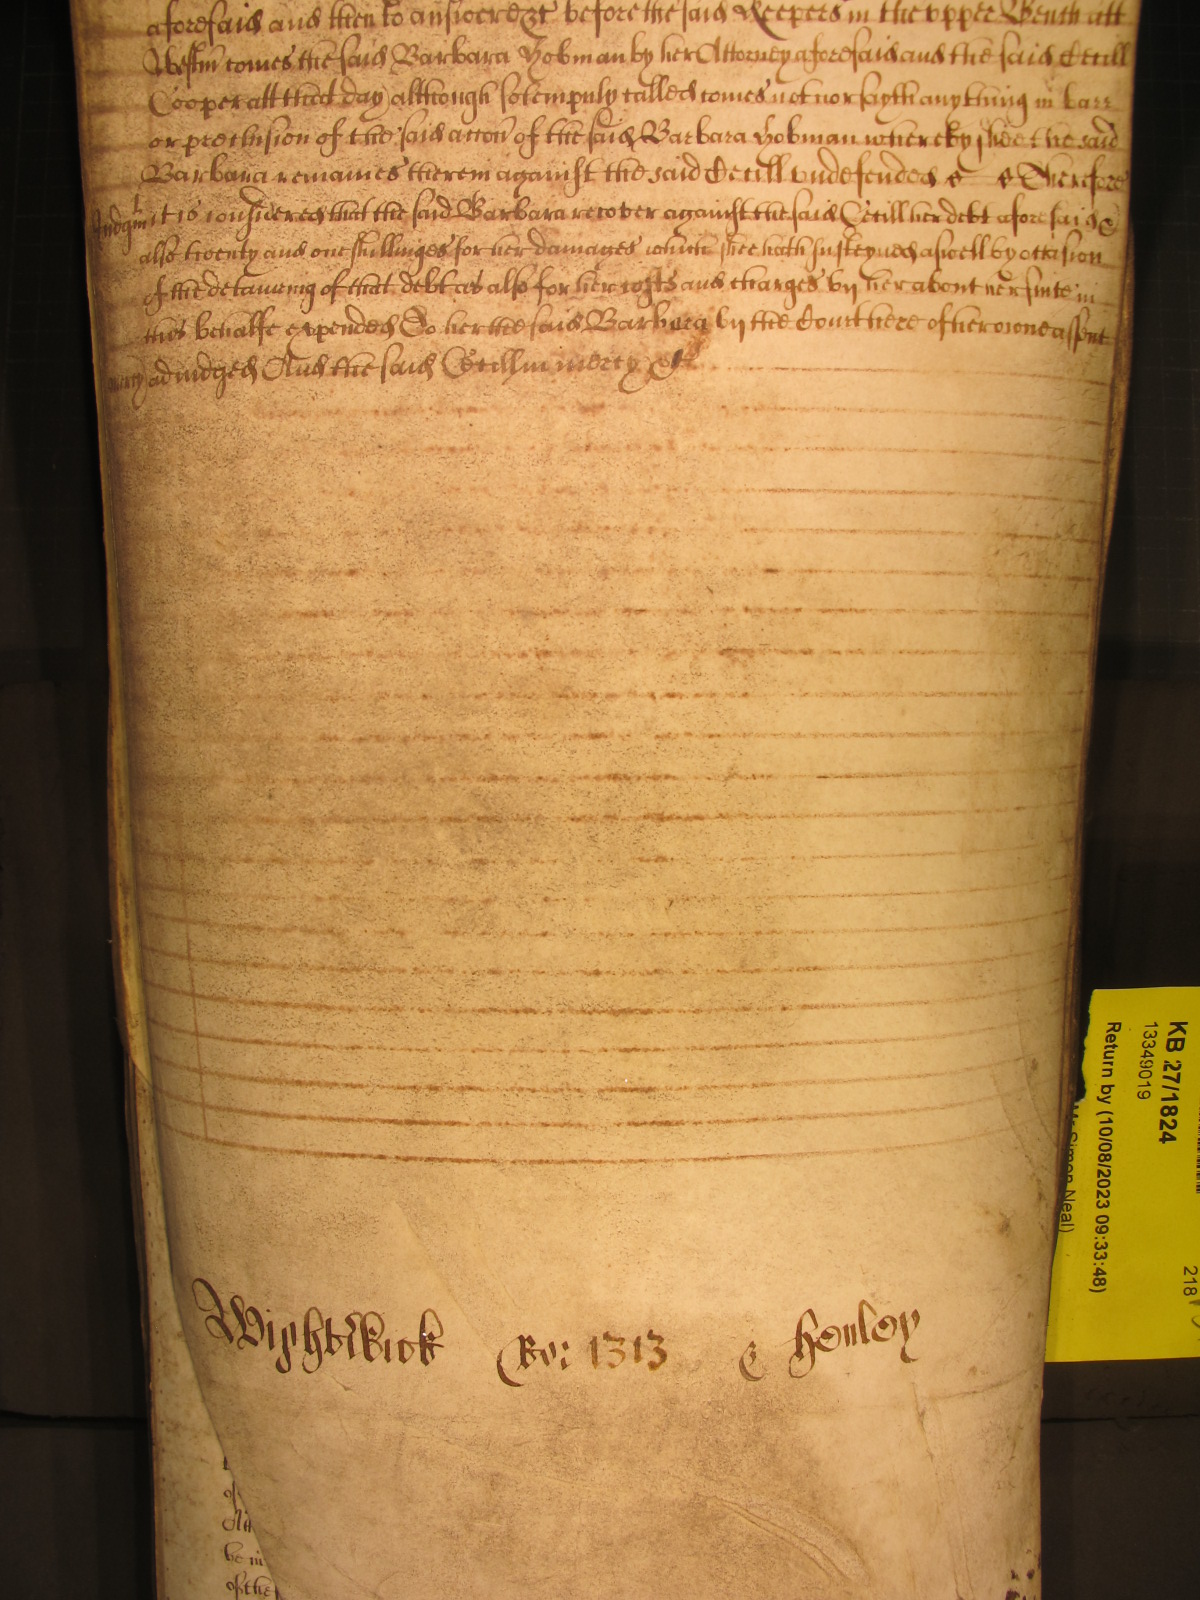 aforesaid and then to answere &c before the said Keepers in the vpper Bench att
Westm comes the said Barbara Hobman by her Attorney aforesaid and the said Cecill
Cooper att that day although solempnly called comes not nor sayth anything in barr
or preclusion of the said accon of the said Barbara Hobman whereby shee the said
Barbara remaines therein against the said Cecill vndefended & & Therefore
Judgmt it is considered that the said Barbara recover against the said Cecill her debt aforesaid &
also twenty and one shillinges for her damages which shee hath susteyned aswell by occasion
of the detaineing of that debt as also for her costs and charges by her about her suite in
this behalfe expended To her the said Barbara by the Court here of her owne assent
mercy adiudged And the said Cecill in mercy &c
Wightwick Ro: 1313 & Henley
of
And
be in
of the
KB 27/1824
13349019
Return by (10/08/2023 09:33:48)
Mr Simon Neal)
218